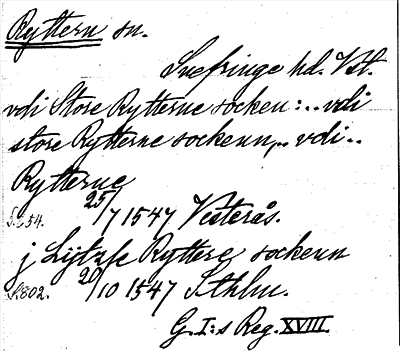 Ryttern sn.
Snefringe hd. Vstl.
vdi Store Rytterne socken:..vdi
store Rytterne sockenn,.. vdi..
Rytterne
S. 254. 25/7 1547 Vesterås.
j Lijtzle Ryttere sockenn
S. 802. 20/10 1547 Sthlm.
G. I:s Reg. XVIII